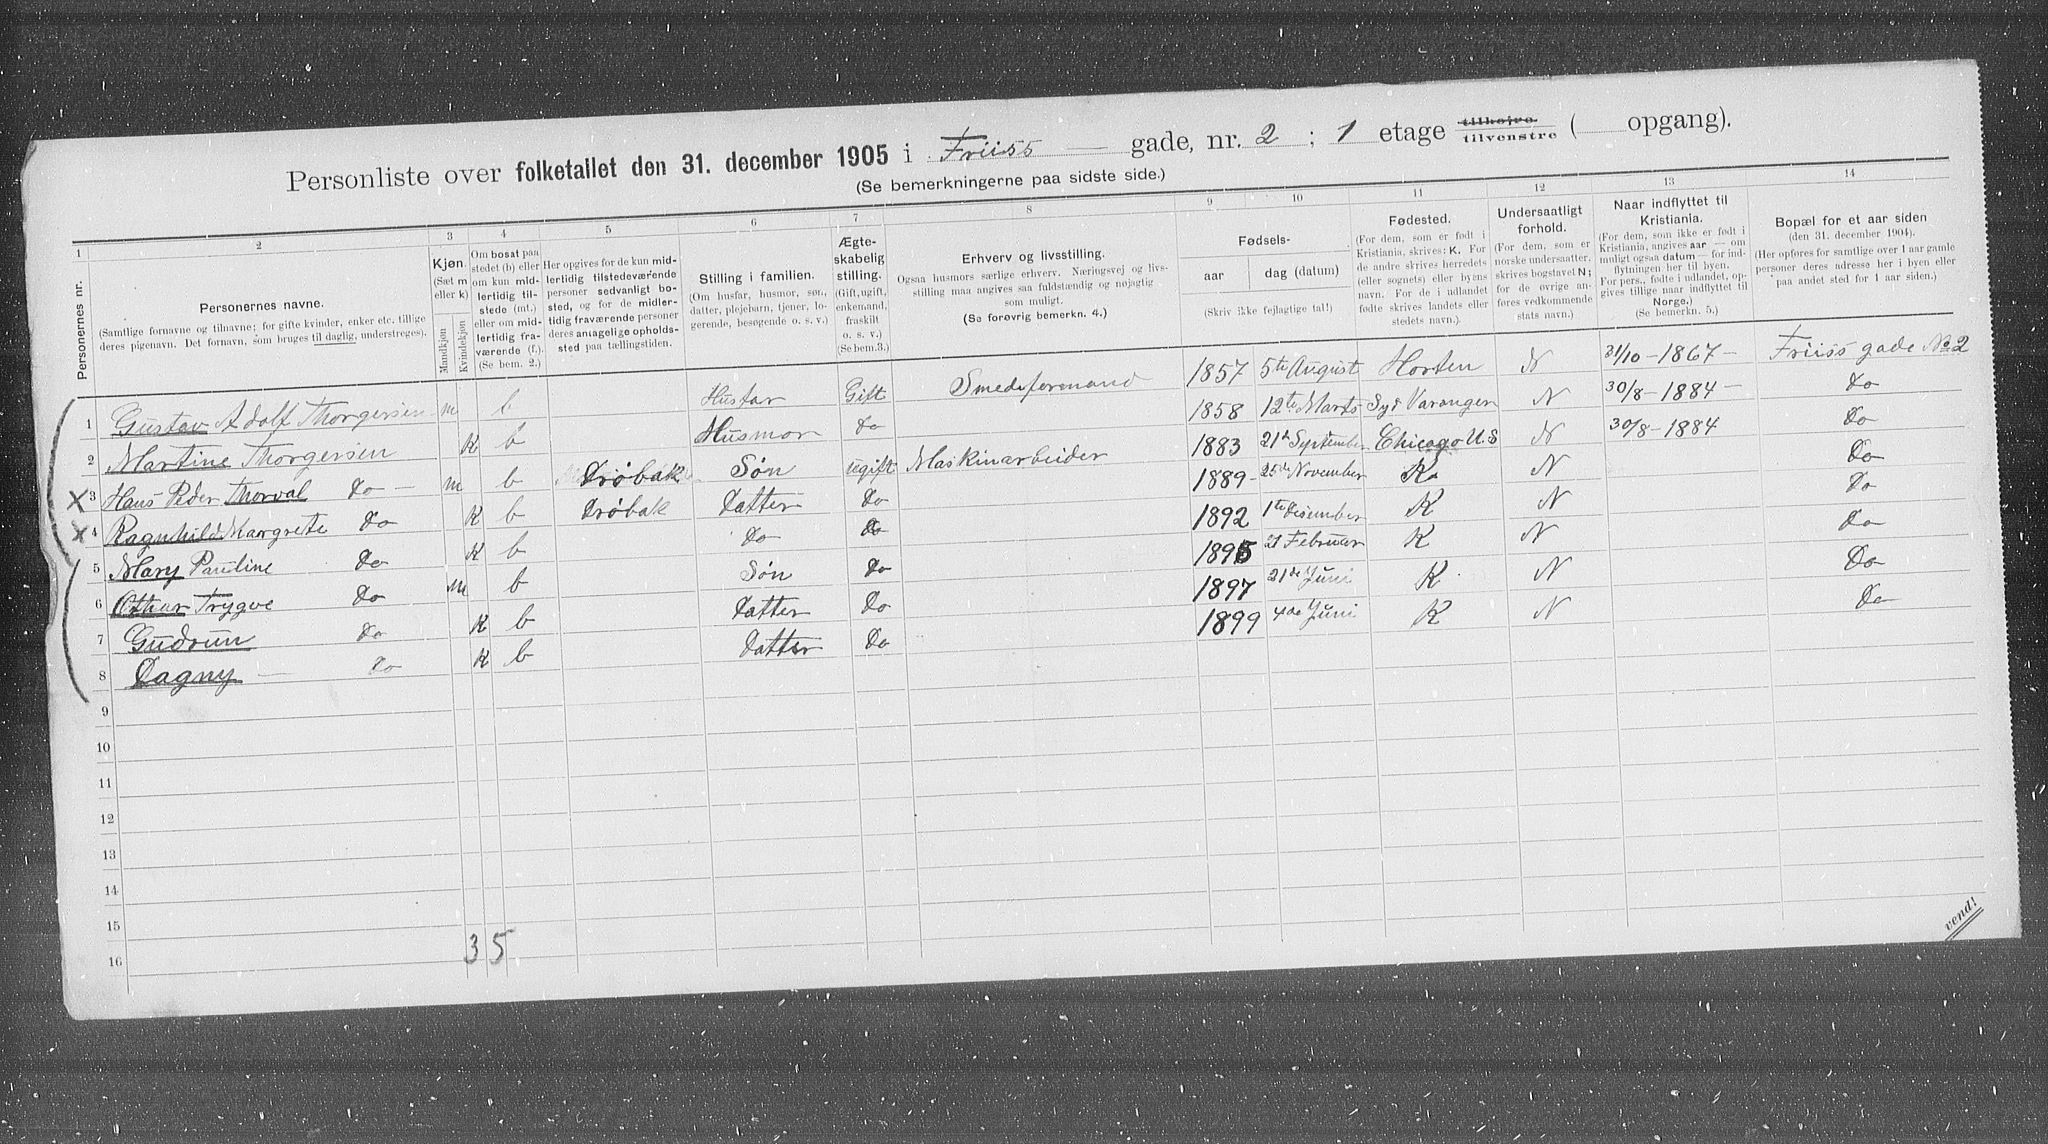 Personliste over folketallet den 31. december 1905 i Friiss gade, nr. 2 ; 1 etage tilhøjre tilvenstre ( opgang).
(Se bemerkningerne paa sidste side.)
1 2 3 4 5 6 7 8 9 10 11 12 13 14
Personernes nr.
Personernes navne.
(Samtlige fornavne og tilnavne; for gifte kvinder, enker etc. tillige deres pigenavn. Det fornavn, som bruges til daglig, understreges).
Kjøn. (Sæt m eller k)
Mandkjøn Kvindekjøn
Om bosat paa stedet (b) eller om kun midlertidig tilstede (mt.) eller om midlertidig fraværende (f.). (Se bem. 2.)
Her opgives for de kun midlertidig tilstedeværende personer sedvanlig bosted, og for de midlertidig fraværende personer deres antagelige opholdssted paa tællingstiden.
Stilling i familien.
(Om husfar, husmor, søn, datter, plejebarn, tjener, logerende, besøgende o. s. v.)
Ægteskabelig stilling.
(Gift, ugift, enkemand, fraskilt o. s. v.) (Se bem.3.)
Erhverv og livsstilling.
Ogsaa husmors særlige erhverv. Næringsvej og livsstilling maa angives saa fuldstændig og nøjagtig som muligt.
(Se forøvrig bemerkn. 4.)
Fødsels-
aar dag (datum)
(Skriv ikke fejlagtige tal!)
Fødested.
(For dem, som er født i Kristiania, skrives: K. For de andre skrives herredets (eller sognets) eller byens navn. For de i udlandet fødte skrives landets eller stedets navn.)
Undersaatligt forhold.
(For dem, som er norske undersaatter, skrives bogstavet N; for de øvrige anføres vedkommende stats navn.)
Naar indflyttet til Kristiania.
(For dem, som ikke er født i Kristiania, angives aar — om muligt ogsaa datum — for indflytningen her til byen. For pers., fødte i udlandet, opgives tillige naar indflyttet til Norge.) (Se bemerkn. 5.)
Bopæl for et aar siden
(den 31. december 1904).
(Her opføres for samtlige over 1 aar gamle personer deres adresse her i byen eller paa andet sted for 1 aar siden.)
1 Gustav Adolf Thorgersen m b Husfar Gift Smedsformand 1857 5te August Horten N 31/10 - 1867 - Friiss gade No 2
2 Martine Thorgersen K b Husmor Do 1858 12te Marts Syd Varanger N 30/8 - 1884 - Do
X 3 Hans Peder Thorval Do - m b Drøbak Søn ugift Maskinarbeider 1883 21de September Chicago U.S N 30/8 - 1884 Do
X 4 Ragnhild Margrete Do K b Drøbak Datter Do 1889 - 25de November K N Do
5 Mary Pauline Do K b Do Do 1892 1te Desember K N Do
6 Othar Trygve Do m b Søn Do 1895 21 Februar K N Do
7 Gudrun Do K b Datter Do 1897 21de Juni K N Do
8 Dagny - Do K b Datter Do 1899 4de Juni K N Do
9
10
11
12
13
14
15
16
3 5
vend!